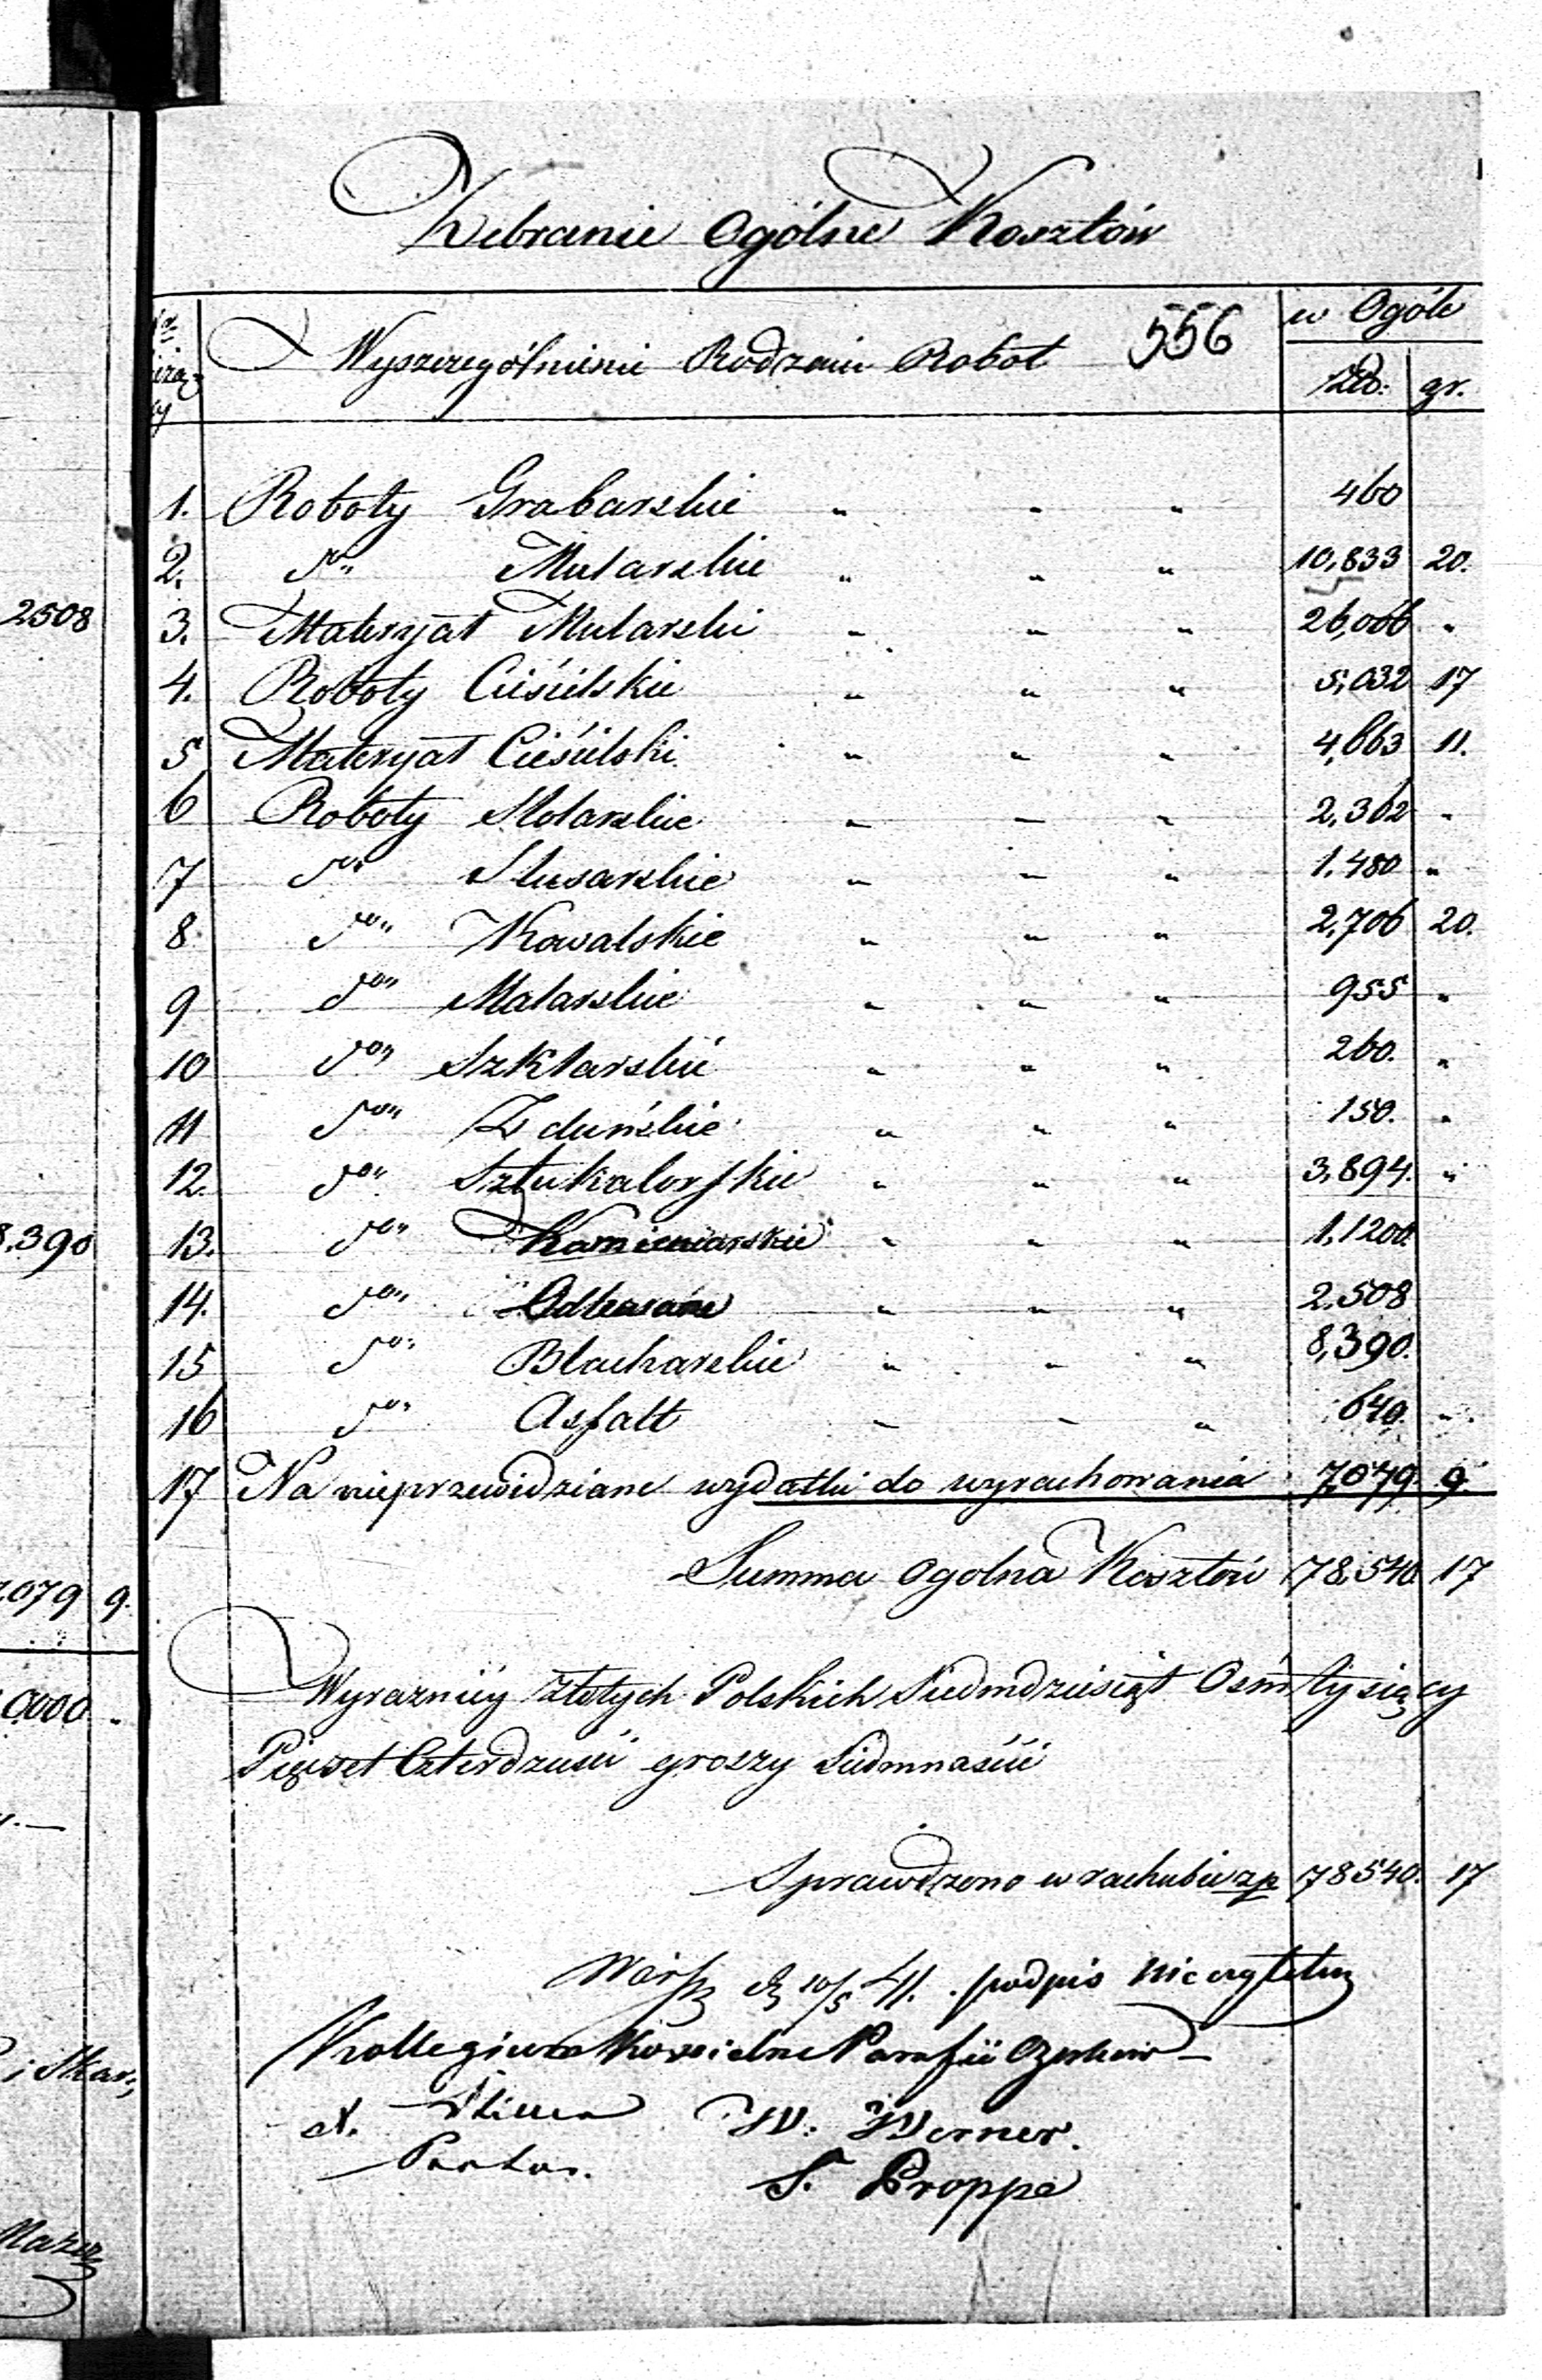 Zebranie Ogólne Kosztów
556
w Ogóle
Wyszczególnienie Rodzaiu Robot
Złp: gr.
1. Roboty Grabarskie " " " 460
2. d° " Mularskie " " " 10,833 20.
2508
3. Materyał Mularski " " " 26,006 "
4. Roboty Ciesielskie " " " 5,032 17
5 Materyał Ciesielski " " " 4,663 11.
6 Roboty Stolarskie " " " 2,362 "
7 d° " Slusarskie " " " 1,480 "
8 d° " Kowalskie " " " 2,706 20.
9 d° " Malarskie " " " 955 "
10 d° " Szklarskie " " " 260. "
11 d° " Zduńskie " " " 150. "
12. d° " Sztukatorskie " " " 3,894. "
8.390
13. d° " Kamieniarskie " " " 1,1200.
14. d° " " " " 2.508
15 d° " Blacharskie " " " 8,390.
16 d° " Asfalt " " " 640. "
17 Na nieprzewidziane wydatki do wyrachowania 7,079. 9
Summa ogolna Kosztów 78,540 17
7.079 9.
Wyrazniey złotych Polskich Siedmdziesiąt Ośm tysięcy
0000 "
Pięćset Czterdzieści groszy Siedmnaście
Sprawdzono w rachubie zp 78540. 17
Warsz d 10/5 41. podpis nieczytelny
Kollegium Kościelne Parafii Ozorkow
i Skar.
W. Werner.
Pastor.
S. Proppe